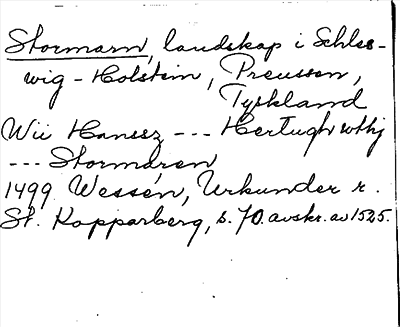 Stormarn, landskap i Schles-
wig-Holstein, Preussen,
Tyskland
Wii Hansz --- Hertugh wthj
--- Stormaren
1499. Wessén, Urkunder r.
St. Kopparberg, s. 70. avskr. av 1525.